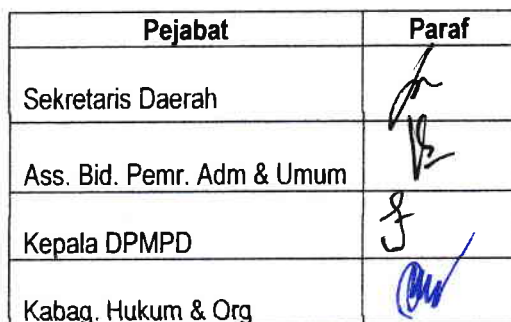 Pejabat Paraf
Sekretaris Daerah
Ass. Bid. Pemr. Adm & Umum
Kepala DPMPD
Kabag. Hukum & Org